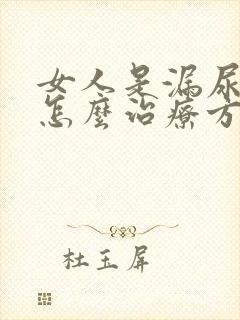 女人是漏尿
怎麼治療方
杜玉屏